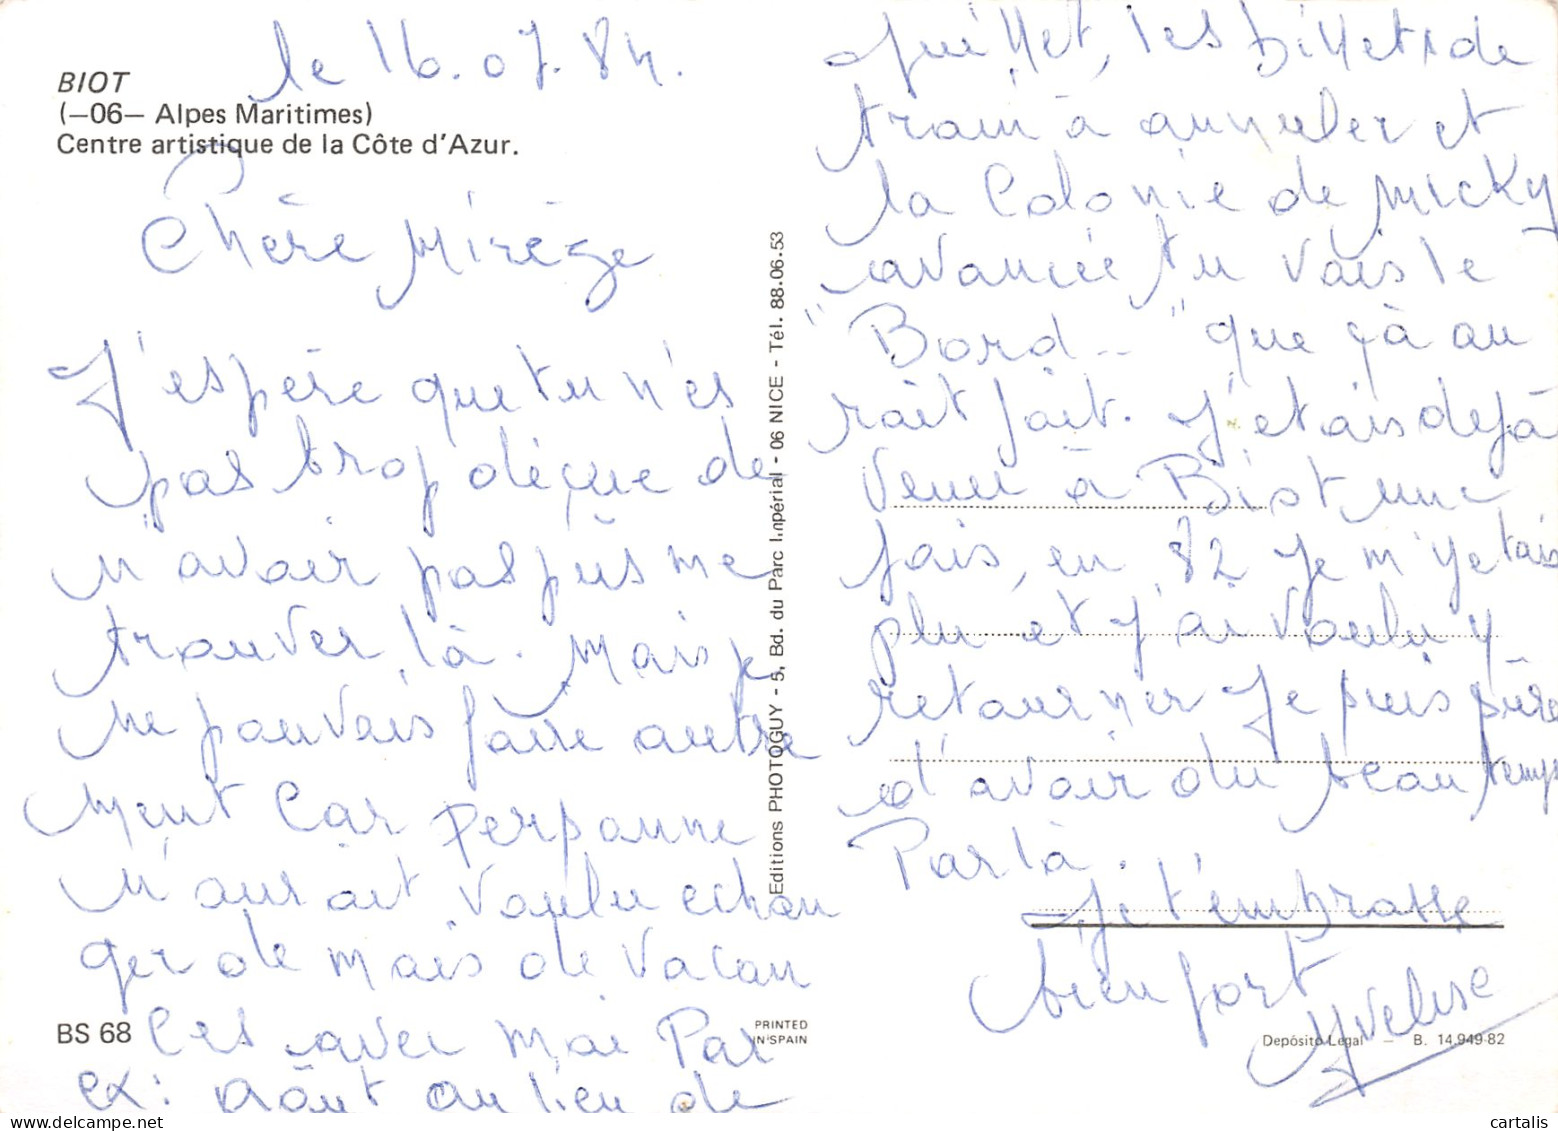 BIOT
(—06— Alpes Maritimes)
Centre artistique de la Côte d'Azur.
le 16.07.84.
Chère Mirège
J'espère que tu n'es
pas trop déçue de
n'avoir pas pûs me
trouver là. Mais je
ne pouvais faire autre
ment car personne
n'aurait voulu echan
ger de mois de vacan
ces avec moi Par
ex: Août au lieu de
Juillet, les billets de
train à annuler et
la Colonie de Micky
avancée tu vais le
"Bord.." que çà au
rait fait. J'étais dejà
venu à Biot une
fois, en 82 Je m'y etais
plu et j'ai voulu y
retourner Je suis sûre
d'avoir du beau temps
Par là.
Je t'embrasse
bien fort
Yvelise
Editions PHOTOGUY - 5, Bd. du Parc Impérial - 06 NICE - Tél. 88.06.53
BS 68
PRINTED
IN SPAIN
Depósito Legal — B. 14.949-82
cartalis